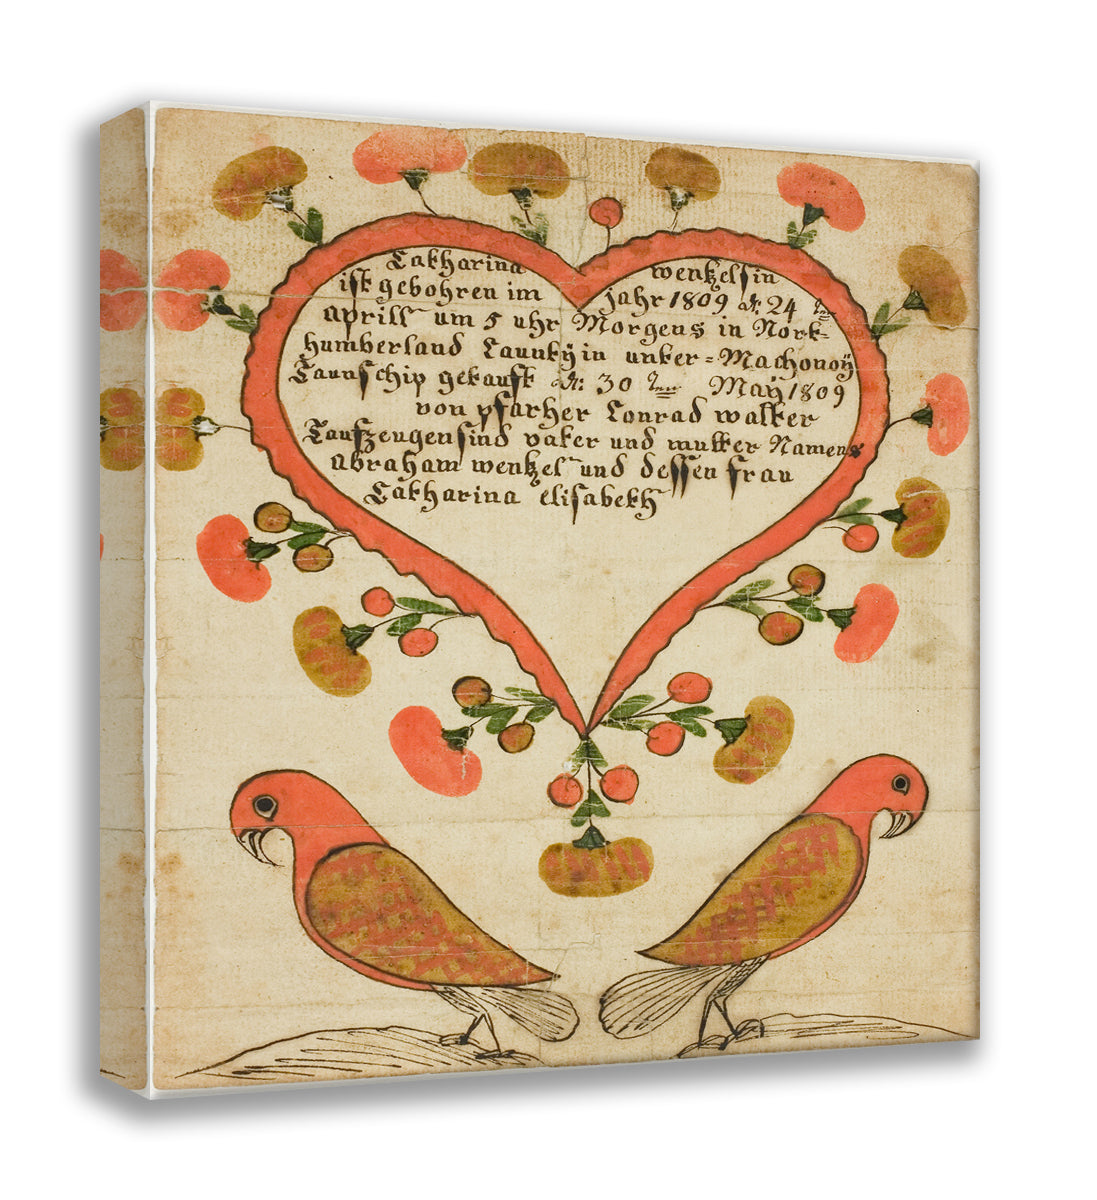 Catharina wentzelsin
ist gebohren im jahr 1809 d: 24 ten
aprill um 5 uhr Morgens in Nort-
humberland Caunty in unter = Machonoÿ
Taunschip getauft d: 30 ten Maÿ 1809
von pfarher Conrad walter
Taufzeugen sind vater und mutter Namens
Abraham wentzel und dessen frau
Catharina elisabeth